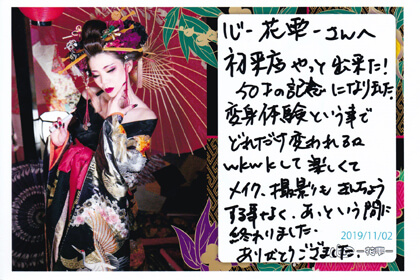 心-花雫-さんへ
初来店やっと出来た!
50才の記念になりました
変身体験という事で
どれだけ変われるか
wkwkして楽しくて
メイク、撮影もきんちょう
する事なく、あっという間に
終わりました。
ありがとうございました。
2019/11/02